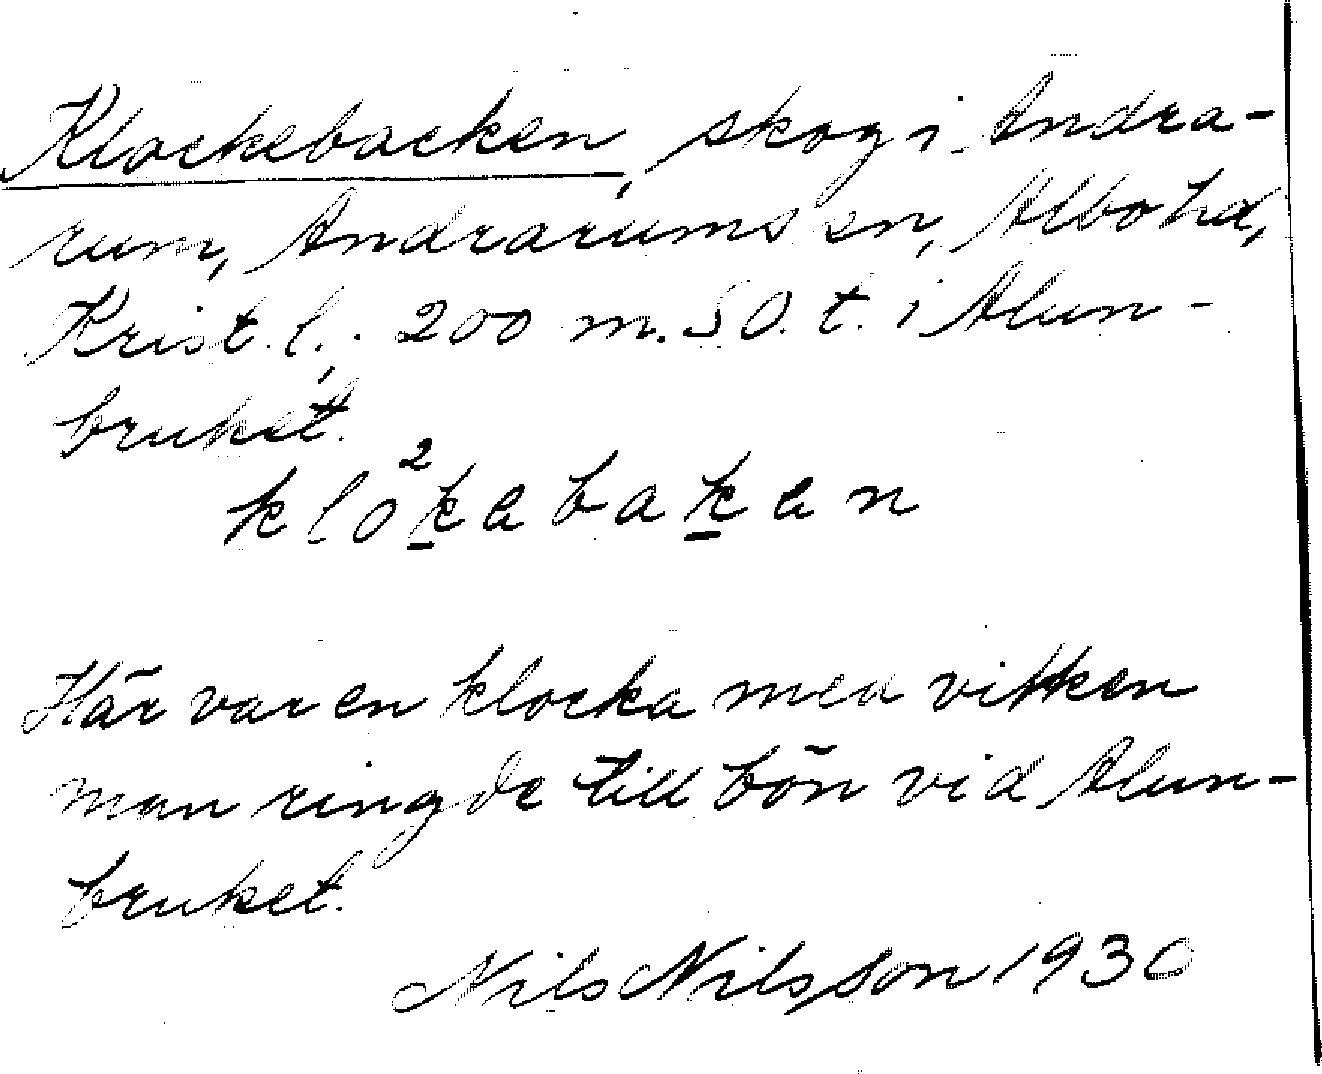 Klockebacken, skog i Andra-
rum, Andrarums sn, Albo hd,
Krist. l. 200 m. SO. t. i Alun-
bruket.
klo²kabakan
Här var en klocka med vilken
man ringde till bön vid Alun-
bruket.
Nils Nilsson 1930